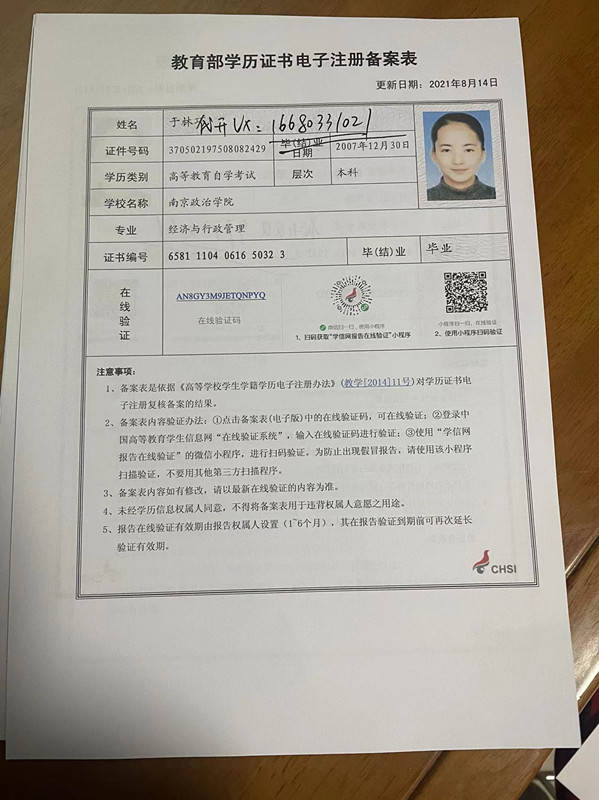 教育部学历证书电子注册备案表
更新日期：2021年8月14日
姓名 于林 开 VX：16680331021
证件号码 370502197508082429 毕(结)业日期 2007年12月30日
学历类别 高等教育自学考试 层次 本科
学校名称 南京政治学院
专业 经济与行政管理
证书编号 6581 1104 0616 5032 3 毕(结)业 毕业
在线验证
AN8GY3M9JETQNPYQ
在线验证码
微信扫一扫，使用小程序
1、扫码获取“学信网报告在线验证”小程序
小程序扫一扫，在线验证
2、使用小程序扫码验证
注意事项：
1、备案表是依据《高等学校学生学籍学历电子注册办法》(教学[2014]11号)对学历证书电
子注册复核备案的结果。
2、备案表内容验证办法：①点击备案表(电子版)中的在线验证码，可在线验证；②登录中
国高等教育学生信息网“在线验证系统”，输入在线验证码进行验证；③使用“学信网
报告在线验证”的微信小程序，进行扫码验证。为防止出现假冒报告，请使用该小程序
扫描验证，不要用其他第三方扫描程序。
3、备案表内容如有修改，请以最新在线验证的内容为准。
4、未经学历信息权属人同意，不得将备案表用于违背权属人意愿之用途。
5、报告在线验证有效期由报告权属人设置（1~6个月），其在报告验证到期前可再次延长
验证有效期。
CHSI